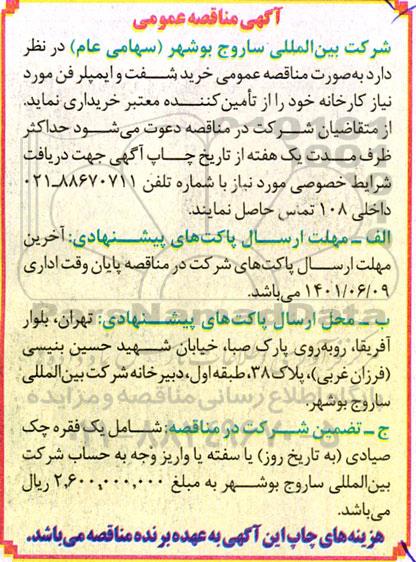 آگهی مناقصه عمومی
شرکت بین‌المللی ساروج بوشهر (سهامی عام) در نظر
دارد به‌صورت مناقصه عمومی خرید شفت و ایمپلر فن مورد
نیاز کارخانه خود را از تأمین‌کننده معتبر خریداری نماید.
از متقاضیان شرکت در مناقصه دعوت می‌شود حداکثر
ظرف مدت یک هفته از تاریخ چاپ آگهی جهت دریافت
شرایط خصوصی مورد نیاز با شماره تلفن ۸۸۶۷۰۷۱۱-۰۲۱
داخلی ۱۰۸ تماس حاصل نمایند.
الف ـ مهلت ارسال پاکت‌های پیشنهادی: آخرین
مهلت ارسال پاکت‌های شرکت در مناقصه پایان وقت اداری
۱۴۰۱/۰۶/۰۹ می‌باشد.
ب ـ محل ارسال پاکت‌های پیشنهادی: تهران، بلوار
آفریقا، روبه‌روی پارک صبا، خیابان شهید حسین بنیسی
(فرزان غربی)، پلاک ۳۸، طبقه اول، دبیرخانه شرکت بین‌المللی
ساروج بوشهر.
ج ـ تضمین شرکت در مناقصه: شامل یک فقره چک
صیادی (به تاریخ روز) یا سفته یا واریز وجه به حساب شرکت
بین‌المللی ساروج بوشهر به مبلغ ۲,۶۰۰,۰۰۰,۰۰۰ ریال
می‌باشد.
هزینه‌های چاپ این آگهی به عهده برنده مناقصه می‌باشد.